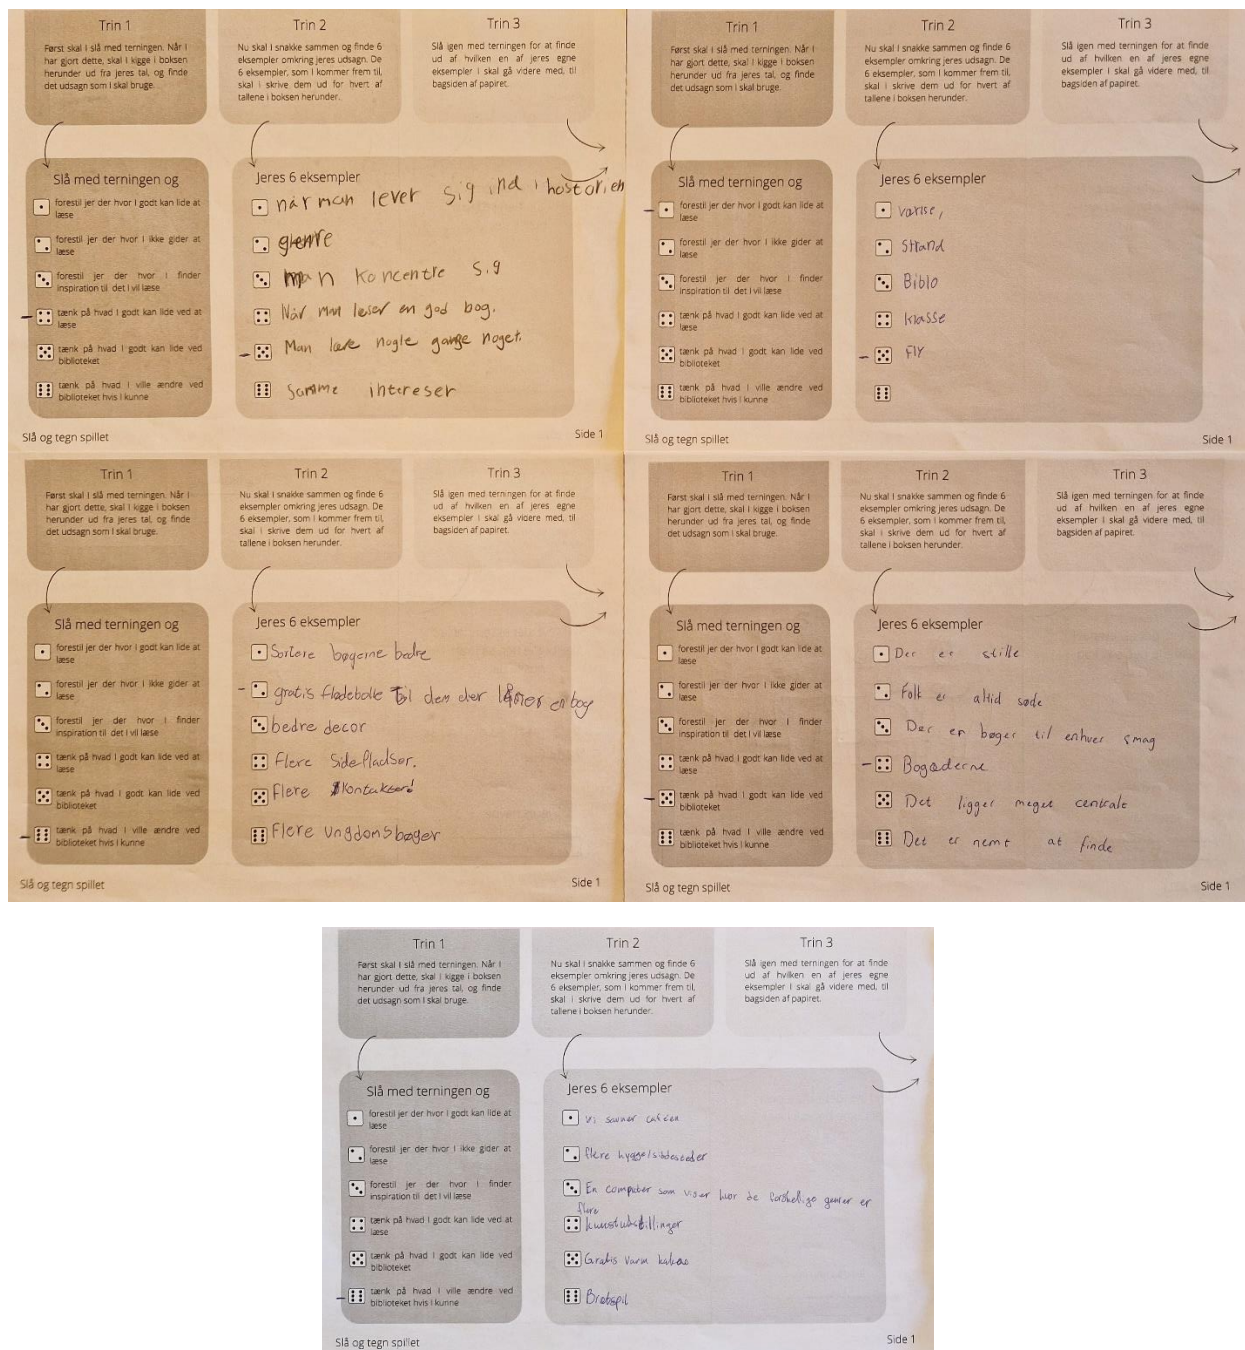 Trin 1
Først skal I slå med terningen. Når I
har gjort dette, skal I kigge i boksen
herunder ud fra jeres tal, og finde
det udsagn som I skal bruge.
Trin 2
Nu skal I snakke sammen og finde 6
eksempler omkring jeres udsagn. De
6 eksempler, som I kommer frem til,
skal I skrive dem ud for hvert af
tallene i boksen herunder.
Trin 3
Slå igen med terningen for at finde
ud af hvilken en af jeres egne
eksempler I skal gå videre med, til
bagsiden af papiret.
Slå med terningen og
forestil jer der hvor I godt kan lide at
læse
forestil jer der hvor I ikke gider at
læse
forestil jer der hvor I finder
inspiration til det I vil læse
tænk på hvad I godt kan lide ved at
læse
tænk på hvad I godt kan lide ved
biblioteket
tænk på hvad I ville ændre ved
biblioteket hvis I kunne
Jeres 6 eksempler
når man lever sig ind i historien
genre
man koncentre sig
Når man læser en god bog.
Man lære nogle gange noget.
Samme intereser
Slå og tegn spillet
Side 1
Trin 1
Først skal I slå med terningen. Når I
har gjort dette, skal I kigge i boksen
herunder ud fra jeres tal, og finde
det udsagn som I skal bruge.
Trin 2
Nu skal I snakke sammen og finde 6
eksempler omkring jeres udsagn. De
6 eksempler, som I kommer frem til,
skal I skrive dem ud for hvert af
tallene i boksen herunder.
Trin 3
Slå igen med terningen for at finde
ud af hvilken en af jeres egne
eksempler I skal gå videre med, til
bagsiden af papiret.
Slå med terningen og
forestil jer der hvor I godt kan lide at
læse
forestil jer der hvor I ikke gider at
læse
forestil jer der hvor I finder
inspiration til det I vil læse
tænk på hvad I godt kan lide ved at
læse
tænk på hvad I godt kan lide ved
biblioteket
tænk på hvad I ville ændre ved
biblioteket hvis I kunne
Jeres 6 eksempler
Strand
Biblo
klasse
Fly
Slå og tegn spillet
Side 1
Trin 1
Først skal I slå med terningen. Når I
har gjort dette, skal I kigge i boksen
herunder ud fra jeres tal, og finde
det udsagn som I skal bruge.
Trin 2
Nu skal I snakke sammen og finde 6
eksempler omkring jeres udsagn. De
6 eksempler, som I kommer frem til,
skal I skrive dem ud for hvert af
tallene i boksen herunder.
Trin 3
Slå igen med terningen for at finde
ud af hvilken en af jeres egne
eksempler I skal gå videre med, til
bagsiden af papiret.
Slå med terningen og
forestil jer der hvor I godt kan lide at
læse
forestil jer der hvor I ikke gider at
læse
forestil jer der hvor I finder
inspiration til det I vil læse
tænk på hvad I godt kan lide ved at
læse
tænk på hvad I godt kan lide ved
biblioteket
tænk på hvad I ville ændre ved
biblioteket hvis I kunne
Jeres 6 eksempler
Sortere bøgerne bedre
gratis flødebolle til dem der låner en bog
bedre decor
Flere Sidepladser.
Flere
Flere ungdomsbøger
Slå og tegn spillet
Side 1
Trin 1
Først skal I slå med terningen. Når I
har gjort dette, skal I kigge i boksen
herunder ud fra jeres tal, og finde
det udsagn som I skal bruge.
Trin 2
Nu skal I snakke sammen og finde 6
eksempler omkring jeres udsagn. De
6 eksempler, som I kommer frem til,
skal I skrive dem ud for hvert af
tallene i boksen herunder.
Trin 3
Slå igen med terningen for at finde
ud af hvilken en af jeres egne
eksempler I skal gå videre med, til
bagsiden af papiret.
Slå med terningen og
forestil jer der hvor I godt kan lide at
læse
forestil jer der hvor I ikke gider at
læse
forestil jer der hvor I finder
inspiration til det I vil læse
tænk på hvad I godt kan lide ved at
læse
tænk på hvad I godt kan lide ved
biblioteket
tænk på hvad I ville ændre ved
biblioteket hvis I kunne
Jeres 6 eksempler
Der er stille
Folk er altid søde
Der er bøger til enhver smag
Bogæderne
Det ligger meget centralt
Det er nemt at finde
Slå og tegn spillet
Side 1
Trin 1
Først skal I slå med terningen. Når I
har gjort dette, skal I kigge i boksen
herunder ud fra jeres tal, og finde
det udsagn som I skal bruge.
Trin 2
Nu skal I snakke sammen og finde 6
eksempler omkring jeres udsagn. De
6 eksempler, som I kommer frem til,
skal I skrive dem ud for hvert af
tallene i boksen herunder.
Trin 3
Slå igen med terningen for at finde
ud af hvilken en af jeres egne
eksempler I skal gå videre med, til
bagsiden af papiret.
Slå med terningen og
forestil jer der hvor I godt kan lide at
læse
forestil jer der hvor I ikke gider at
læse
forestil jer der hvor I finder
inspiration til det I vil læse
tænk på hvad I godt kan lide ved at
læse
tænk på hvad I godt kan lide ved
biblioteket
tænk på hvad I ville ændre ved
biblioteket hvis I kunne
Jeres 6 eksempler
Vi savner caféen
flere hygge/siddesteder
En computer som viser hvor de forskellige genrer er
flere
kunstudstillinger
Gratis varm kakao
Brætspil
Slå og tegn spillet
Side 1